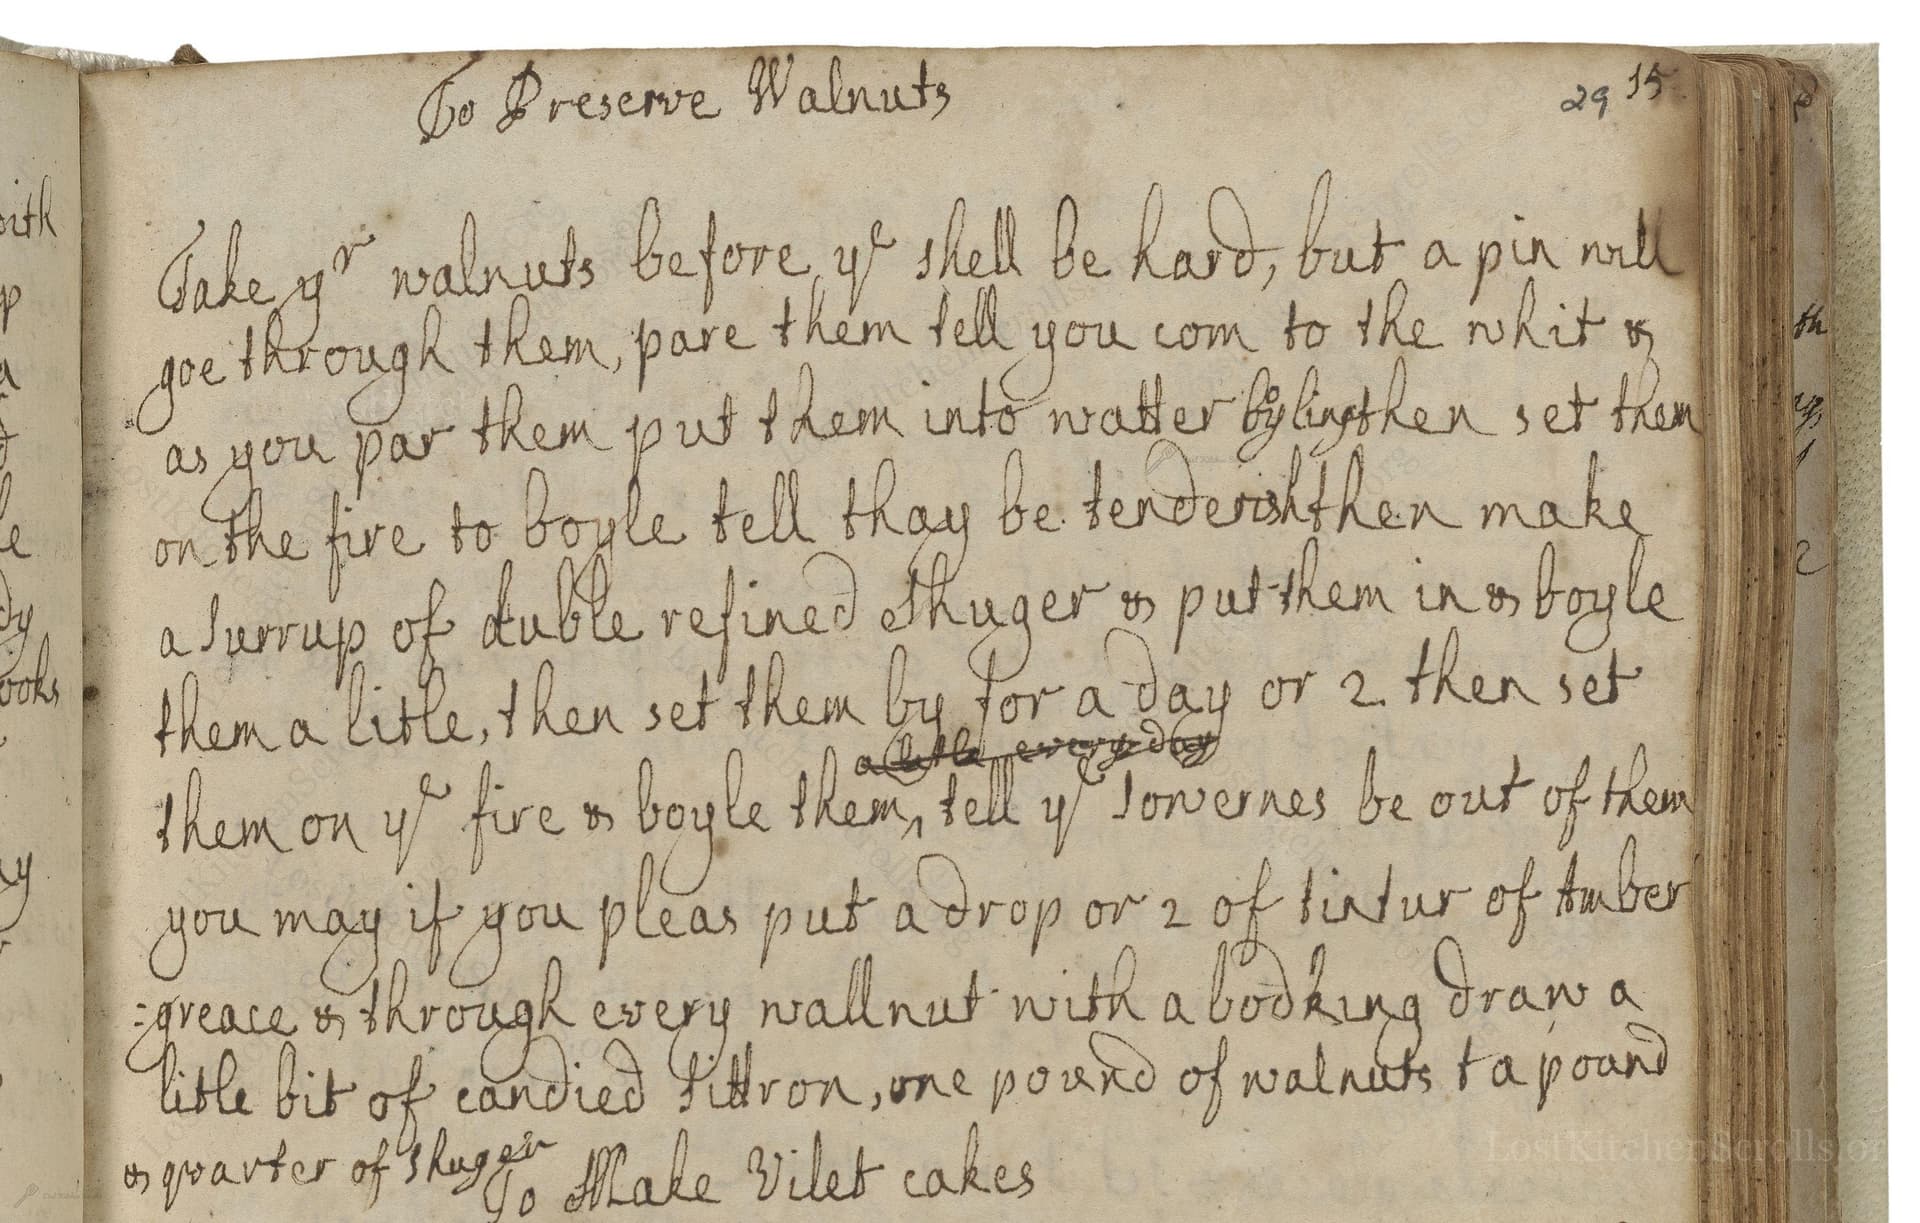 To Preserve Walnuts
29 15
Take yr walnuts before ye shell be hard, but a pin will
goe through them, pare them tell you com to the whit &
as you par them put them into watter byling then set them
on the fire to boyle tell thay be tenderish then make
a surrup of duble refined shuger & put them in & boyle
them a litle, then set them by for a day or 2. then set
a little every day
them on ye fire & boyle them, tell ye sowernes be out of them
you may if you pleas put a drop or 2 of tintur of Amber
=greace & through every wallnut with a bodking draw a
litle bit of candied sittron, one pound of walnuts t a pound
& quarter of shuger
To Make Vilet cakes
LostKitchenScrolls.or